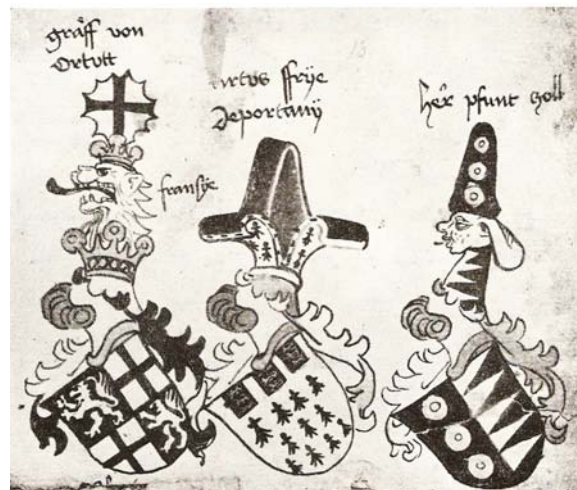 gräff von
Ortutt
fransÿe
artus ffrÿe
Deportanÿ
her pfunt zoll